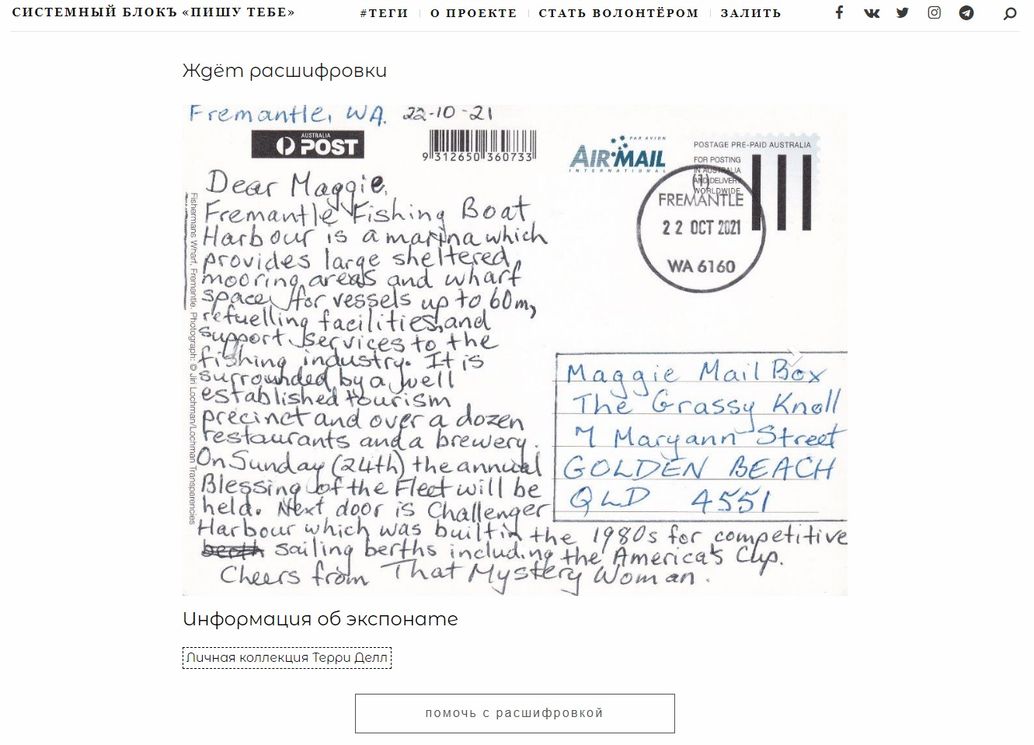 СИСТЕМНЫЙ БЛОКЪ «ПИШУ ТЕБЕ»
#ТЕГИ
О ПРОЕКТЕ
СТАТЬ ВОЛОНТЁРОМ
ЗАЛИТЬ
Ждёт расшифровки
Fremantle, WA. 22-10-21
AUSTRALIA
POST
9 312650 360733
PAR AVION
AIR MAIL
INTERNATIONAL
POSTAGE PRE-PAID AUSTRALIA
FOR POSTING
IN AUSTRALIA
AND DELIVERY
WORLDWIDE
(1)
FREMANTLE
22 OCT 2021
WA 6160
Dear Maggie,
Fremantle Fishing Boat
Harbour is a marina which
provides large sheltered
mooring areas and wharf
space for vessels up to 60m,
refuelling facilities, and
support services to the
fishing industry. It is
surrounded by a well
established tourism
precinct and over a dozen
restaurants and a brewery.
On Sunday (24th) the annual
Blessing of the Fleet will be
held. Next door is Challenger
Harbour which was built in the 1980s for competitive
berth sailing berths including the America's Cup.
Cheers from That Mystery Woman.
Fishermans Wharf, Fremantle. Photograph: © Jiri Lochman/Lochman Transparencies
Maggie Mail Box
The Grassy Knoll
7 Maryann Street
GOLDEN BEACH
QLD 4551
Информация об экспонате
Личная коллекция Терри Делл
ПОМОЧЬ С РАСШИФРОВКОЙ